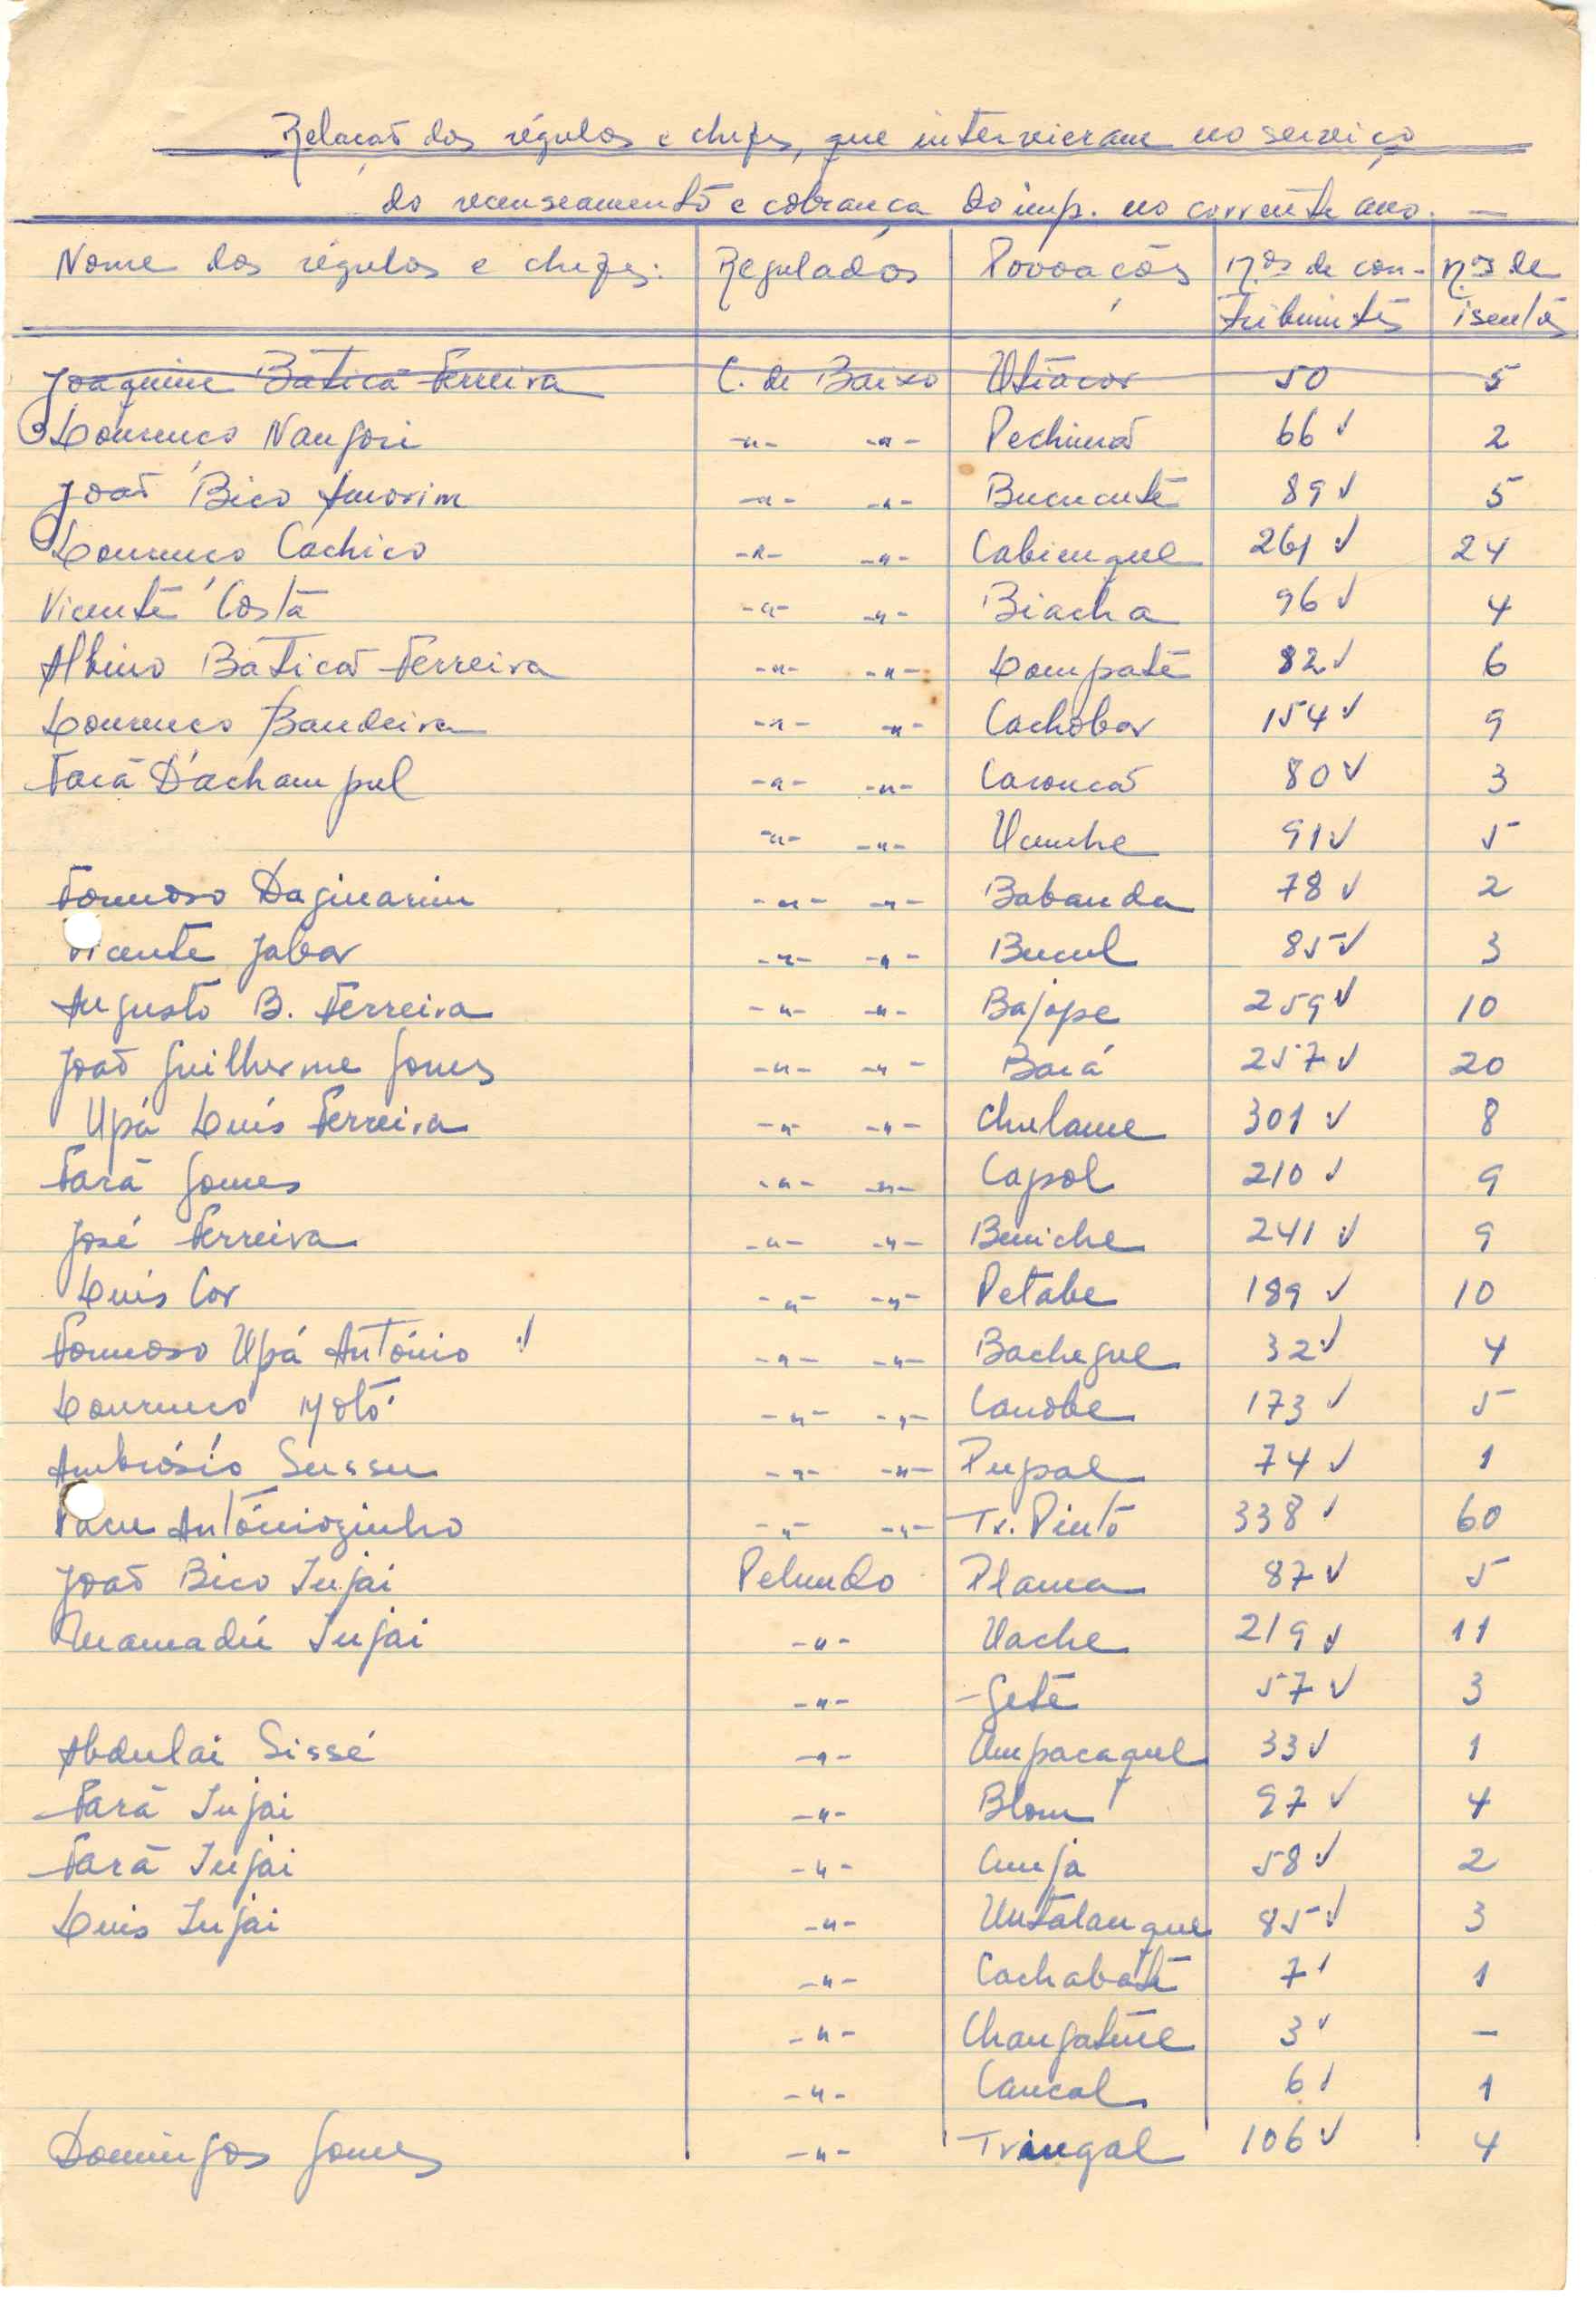 Relação dos régulos e chefes, que intervieram no serviço
do recenseamento e cobrança do imp. no corrente ano. —
Nome dos régulos e chefes: Regulados Povoações n.os de con- n.os de
tribuintes isentos
Joaquim Baticã Ferreira C. de Baixo Utiacor 50 5
Lourenço Nangori -"- -"- Pechimã 66 ✓ 2
João Bico Amorim -"- -"- Bucucute 89 ✓ 5
Lourenço Cachico -"- -"- Cabienque 261 ✓ 24
Vicente Costa -"- -"- Biacha 96 ✓ 4
Albino Baticã Ferreira -"- -"- Lompate 82 ✓ 6
Lourenço Bandeira -"- -"- Cachobar 154 ✓ 9
Fará Dachampul -"- -"- Caroncã 80 ✓ 3
-"- -"- Ucunhe 91 ✓ 5
Formoso Daginarim -"- -"- Babanda 78 ✓ 2
Vicente Jabor -"- -"- Bucul 85 ✓ 3
Augusto B. Ferreira -"- -"- Bajope 259 ✓ 10
João Guilherme Gomes -"- -"- Bará 257 ✓ 20
Upá Luís Ferreira -"- -"- Chulame 301 ✓ 8
Fará Gomes -"- -"- Capol 210 ✓ 9
José Ferreira -"- -"- Beniche 241 ✓ 9
Luís Cor -"- -"- Petabe 189 ✓ 10
Formoso Upá António ✓ -"- -"- Bachegue 32 ✓ 4
Lourenço Motó -"- -"- Canobe 173 ✓ 5
Ambrósio Sussu -"- -"- Pupal 74 ✓ 1
António​zinho -"- -"- Tx. Pinto 338 ✓ 60
João Bico Injai Pelundo Plama 87 ✓ 5
Mamadú Injai -"- Uache 219 ✓ 11
-"- Jete 57 ✓ 3
Abdulai Sissé -"- Umpacaque 33 ✓ 1
Fará Injai -"- Blom 97 ✓ 4
Fará Injai -"- 58 ✓ 2
Luis Injai -"- Untalanque 85 ✓ 3
-"- Cachabate 7 ✓ 1
-"- 3 ✓ —
-"- Cancal 6 ✓ 1
Domingos Gomes -"- Tringal 106 ✓ 4